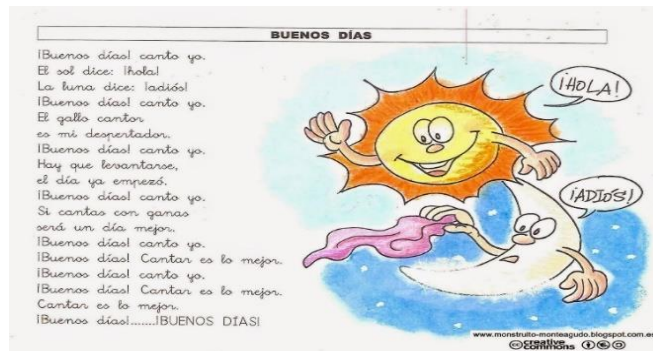 BUENOS DÍAS
¡Buenos días! canto yo.
El sol dice: ¡hola!
La luna dice: ¡adiós!
¡Buenos días! canto yo.
El gallo cantor
es mi despertador.
¡Buenos días! canto yo.
Hay que levantarse,
el día ya empezó.
¡Buenos días! canto yo.
Si cantas con ganas
será un día mejor.
¡Buenos días! canto yo.
¡Buenos días! Cantar es lo mejor.
¡Buenos días! canto yo.
¡Buenos días! Cantar es lo mejor.
Cantar es lo mejor.
¡Buenos días!.......¡BUENOS DIAS!
¡HOLA!
¡ADIÓS!
www.monstruito-monteagudo.blogspot.com.es
creative commons